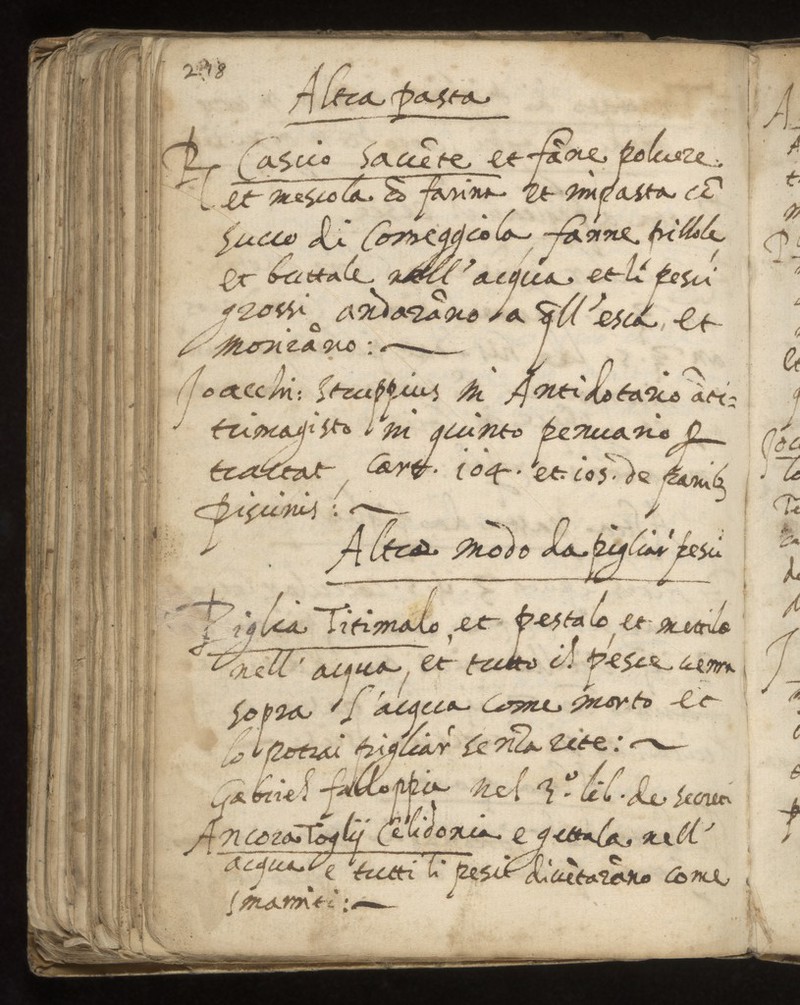 298
Altra pasta
℞ Cascio saccẽte et fãne polvere.
et mescola cõ farina et impasta cõ
succo di Correggiola fanne pillole
et buttale nell' acqua et li pesci
grossi andarãno a q̃ll' esca, et
morirãno:
Joacchi: Struppius in Antidotario ãti=
trimagisto in quinto penuario
tractat, cart. 104. et. 105. de panib
piscinis:
Altro modo da pigliar pesci
Piglia Titimalo, et pestalo et mettilo
nell' acqua, et tutto il pesce verra
sopra l'acqua come morto et
lo potrai pigliar senza rete:
Gabriel falloppia nel 3.º lib. de secreti
Ancora Toglij Celidonia e gettala nell'
acqua e tutti li pesci divẽtarãno come
smarriti:
A
P
et
Joa
Te